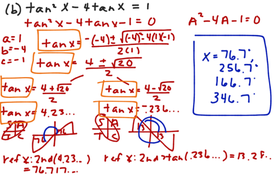 (b) tan² x - 4 tan x = 1
tan² x - 4 tan x - 1 = 0
A² - 4A - 1 = 0
a = 1
b = -4
c = -1
tan x = -(-4) ± √(-4)² - 4(1)(-1)
2(1)
tan x = 4 ± √20
2
x = 76.7°
256.7°
166.7°
346.7°
tan x = 4 + √20
2
tan x = 4 - √20
2
tan x = 4.23...
tan x = -.236...
S A
T C
S A
T C
ref x: 2nd (4.23...
= 76.717...
ref x: 2nd tan (.236... = 13.28...